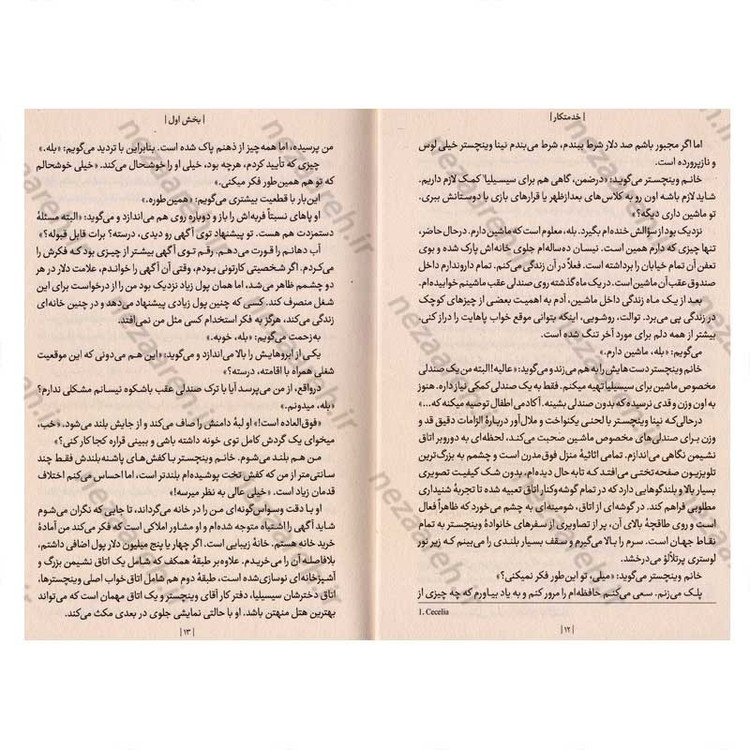 | خدمتکار |
اما اگر مجبور باشم صد دلار شرط ببندم، شرط می‌بندم نینا وینچستر خیلی لوس
و نازپرورده است.
خانم وینچستر می‌گوید: «درضمن، گاهی هم برای سیسیلیا¹ کمک لازم داریم.
شاید لازم باشه اون رو به کلاس‌های بعدازظهر یا قرارهای بازی با دوستانش ببری.
تو ماشین داری دیگه؟»
نزدیک بود از سؤالش خنده‌ام بگیرد. بله، معلوم است که ماشین دارم. درحال حاضر،
تنها چیزی که دارم همین است. نیسان ده‌ساله‌ام جلوی خانه‌اش پارک شده و بوی
تعفن آن تمام خیابان را برداشته است. فعلاً در آن زندگی می‌کنم. تمام داروندارم داخل
صندوق عقب آن ماشین است. در یک ماه گذشته روی صندلی عقب ماشینم خوابیده‌ام.
بعد از یک ماه زندگی داخل ماشین، آدم به اهمیت بعضی از چیزهای کوچک
در زندگی پی می‌برد. توالت، روشویی، اینکه بتوانی موقع خواب پاهایت را دراز کنی.
بیشتر از همه دلم برای مورد آخر تنگ شده است.
می‌گویم: «بله، ماشین دارم.»
خانم وینچستر دست‌هایش را به هم می‌زند و می‌گوید: «عالیه! البته من یک صندلی
مخصوص ماشین برای سیسیلیا تهیه میکنم. فقط به یک صندلی کمکی نیاز داره. هنوز
به اون وزن و قدی نرسیده که بدون صندلی بشینه. آکادمی اطفال توصیه میکنه که...»
درحالی‌که نینا وینچستر با لحنی یکنواخت و ملال‌آور دربارهٔ الزامات دقیق قد و
وزن برای صندلی‌های مخصوص ماشین صحبت می‌کند، لحظه‌ای به دوروبر اتاق
نشیمن نگاهی می‌اندازم. تمامی اثاثیهٔ منزل فوق‌مدرن است و چشمم به بزرگ‌ترین
تلویزیون صفحه‌تختی می‌افتد که تابه‌حال دیده‌ام، بدون شک کیفیت تصویری
بسیار بالا و بلندگوهایی دارد که در تمام گوشه‌وکنار اتاق تعبیه شده تا تجربهٔ شنیداری
مطلوبی فراهم کند. در گوشه‌ای از اتاق، شومینه‌ای به چشم می‌خورد که ظاهراً فعال
است و روی طاقچهٔ بالای آن، پر از تصاویری از سفرهای خانوادهٔ وینچستر به تمام
نقاط جهان است. سرم را بالا می‌گیرم و سقف بسیار بلندی را می‌بینم که زیر نور
لوستری پرتلألؤ می‌درخشد.
خانم وینچستر می‌گوید: «میلی، تو این‌طور فکر نمیکنی؟»
پلک می‌زنم. سعی می‌کنم حافظه‌ام را مرور کنم و به یاد بیاورم که چه چیزی از
1. Cecelia
| ۱۲ |
| بخش اول |
من پرسیده، اما همه‌چیز از ذهنم پاک شده است. بنابراین با تردید می‌گویم: «بله.»
چیزی که تأیید کردم، هرچه بود، خیلی او را خوشحال می‌کند. «خیلی خوشحالم
که تو هم همین‌طور فکر میکنی.»
این‌بار با قطعیت بیشتری می‌گویم: «همین‌طوره.»
او پاهای نسبتاً فربه‌اش را باز و دوباره روی هم می‌اندازد و می‌گوید: «البته مسئلهٔ
دستمزدت هم هست. تو پیشنهاد توی آگهی رو دیدی، درسته؟ برات قابل قبوله؟»
آب دهانم را قورت می‌دهم. رقم توی آگهی بیشتر از چیزی بود که فکرش را
می‌کردم. اگر شخصیتی کارتونی بودم، وقتی آن آگهی را خواندم، علامت دلار در هر
دو چشمم ظاهر می‌شد، اما همان پول زیاد نزدیک بود من را از درخواست برای این
شغل منصرف کند. کسی که چنین پول زیادی پیشنهاد می‌دهد و در چنین خانه‌ای
زندگی می‌کند، هرگز به فکر استخدام کسی مثل من نمی‌افتد.
به‌زحمت می‌گویم: «بله، خوبه.»
یکی از ابروهایش را بالا می‌اندازد و می‌گوید: «این هم می‌دونی که این موقعیت
شغلی همراه با اقامته، درسته؟»
درواقع، از من می‌پرسد آیا با ترک صندلی عقب باشکوه نیسانم مشکلی ندارم؟
«بله، میدونم.»
«فوق‌العاده است!» او لبهٔ دامنش را صاف می‌کند و از جایش بلند می‌شود. «خب،
میخوای یک گردش کامل توی خونه داشته باشی و ببینی قراره کجا کار کنی؟»
من هم بلند می‌شوم. خانم وینچستر با کفش‌های پاشنه‌بلندش فقط چند
سانتی‌متر از من که کفش تخت پوشیده‌ام بلندتر است، اما احساس می‌کنم اختلاف
قدمان زیاد است. «خیلی عالی به نظر میرسه!»
او با دقت وسواس‌گونه‌ای من را در خانه می‌گرداند، تا جایی که نگران می‌شوم
شاید آگهی را اشتباه متوجه شده‌ام و او مشاور املاکی است که فکر می‌کند من آمادهٔ
خرید خانه هستم. خانهٔ زیبایی است. اگر چهار یا پنج میلیون دلار پول اضافی داشتم،
بلافاصله آن را می‌خریدم. علاوه‌بر طبقهٔ همکف که شامل یک اتاق نشیمن بزرگ و
آشپزخانه‌ای نوسازی‌شده است، طبقهٔ دوم هم شامل اتاق خواب اصلی وینچسترها،
اتاق دخترشان سیسیلیا، دفتر کار آقای وینچستر و یک اتاق مهمان است که می‌تواند
بهترین هتل منهتن باشد. او با حالتی نمایشی جلوی در بعدی مکث می‌کند.
| ۱۳ |
nezaareh.ir